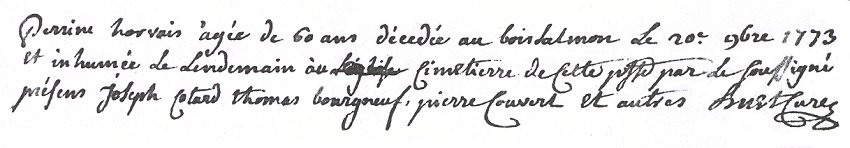 Perrine horvais agée de 60 ans décedée au boisdalmon Le 20e 9bre 1773
et inhumée Le Lendemain au Cimetierre de Cette psse par Le Soussigné
présens Joseph Cotard thomas bourgneuf, pierre Couvert Et autres Curé